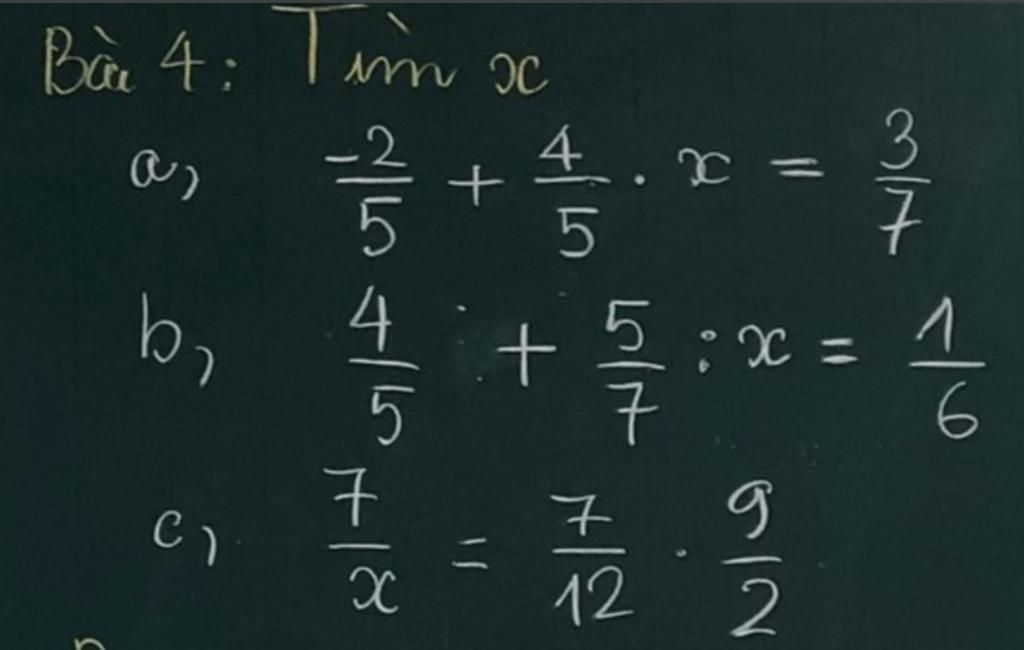 Bài 4: Tìm x
a, -2/5 + 4/5 . x = 3/7
b, 4/5 + 5/7 : x = 1/6
c, 7/x = 7/12 . 9/2